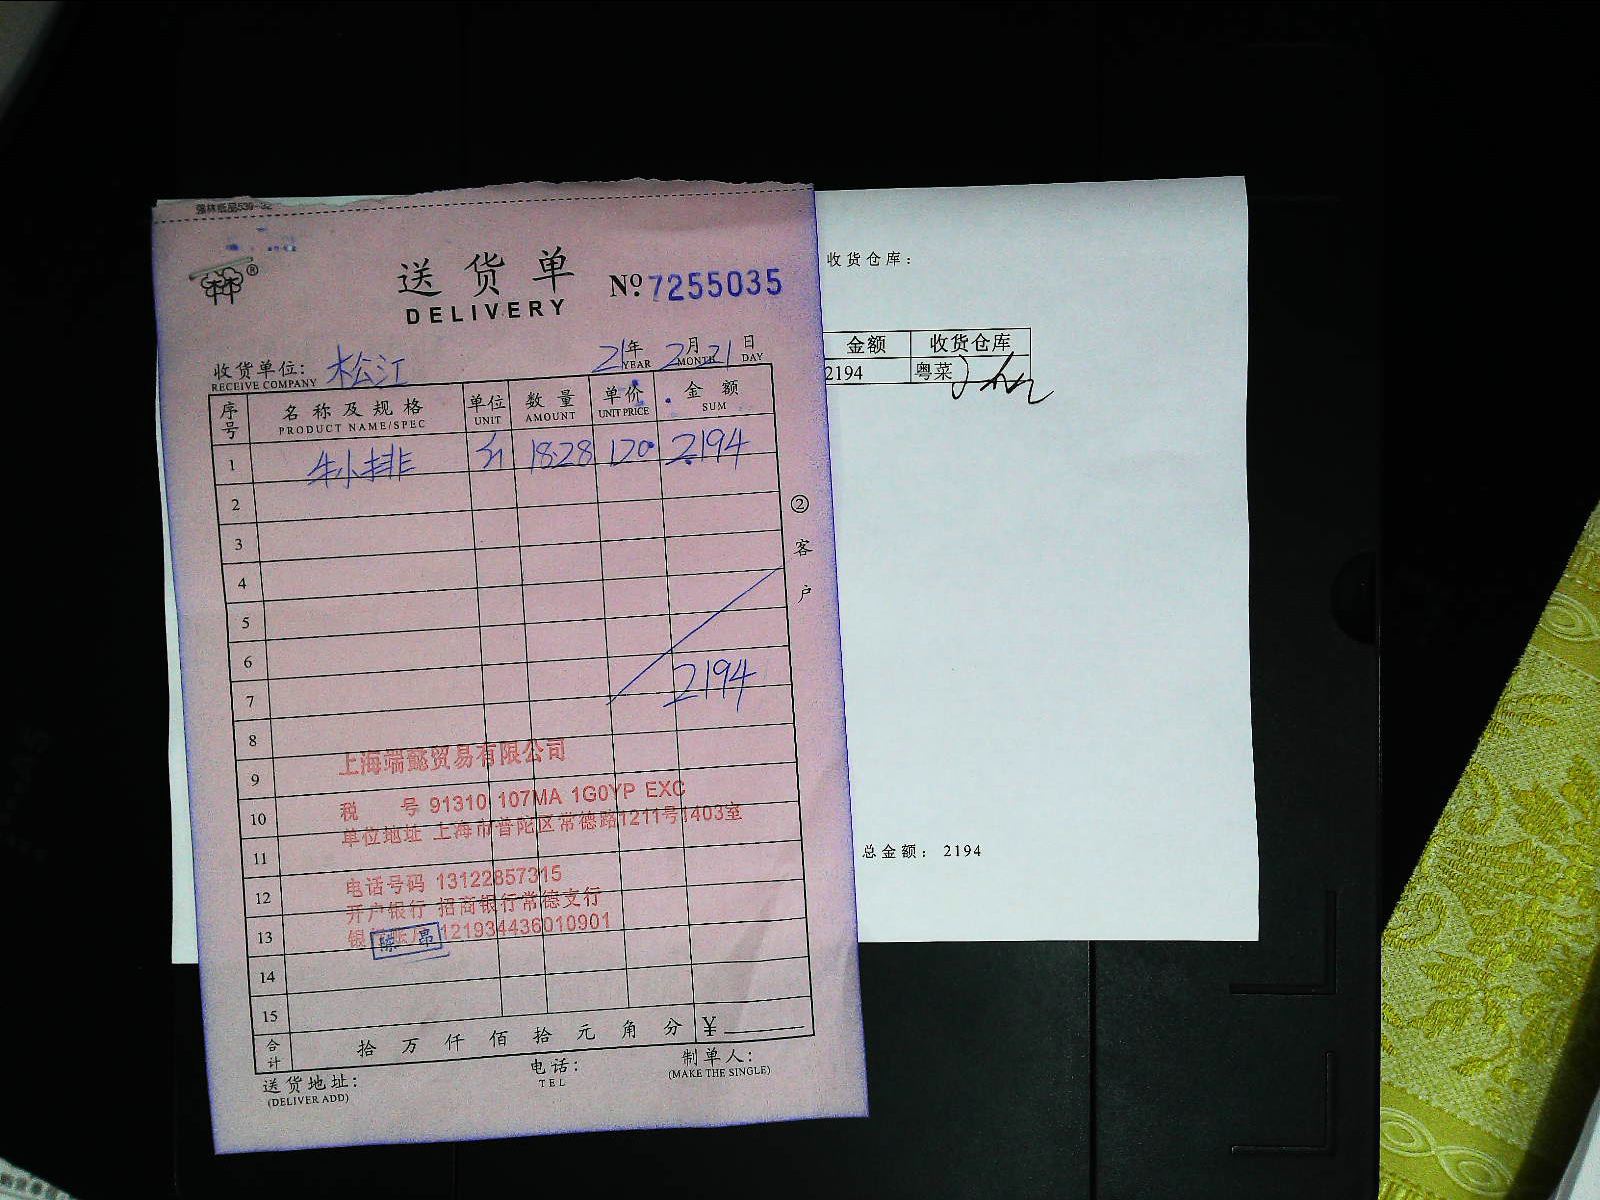 强林纸品539-32
送货单
DELIVERY
№ 7255035
收货单位: 松江
RECEIVE COMPANY
21年 2月 21日
YEAR MONTH DAY
序号 名称及规格 单位 数量 单价 金额
PRODUCT NAME/SPEC UNIT AMOUNT UNIT PRICE SUM
1 牛小排 斤 18.28 120 2194
2
3
4
5
6
7 2194
8
9
10
11
12
13
14
15
上海端懿贸易有限公司
税 号 91310 107MA 1G0YP EXC
单位地址 上海市普陀区常德路1211号1403室
电话号码 13122857315
开户银行 招商银行常德支行
银行账户 121934436010901
合计 拾 万 仟 佰 拾 元 角 分 ¥
送货地址: 电话: 制单人:
(DELIVER ADD) TEL (MAKE THE SINGLE)
② 客户
收货仓库:
金额 收货仓库
2194 粤菜
总金额: 2194